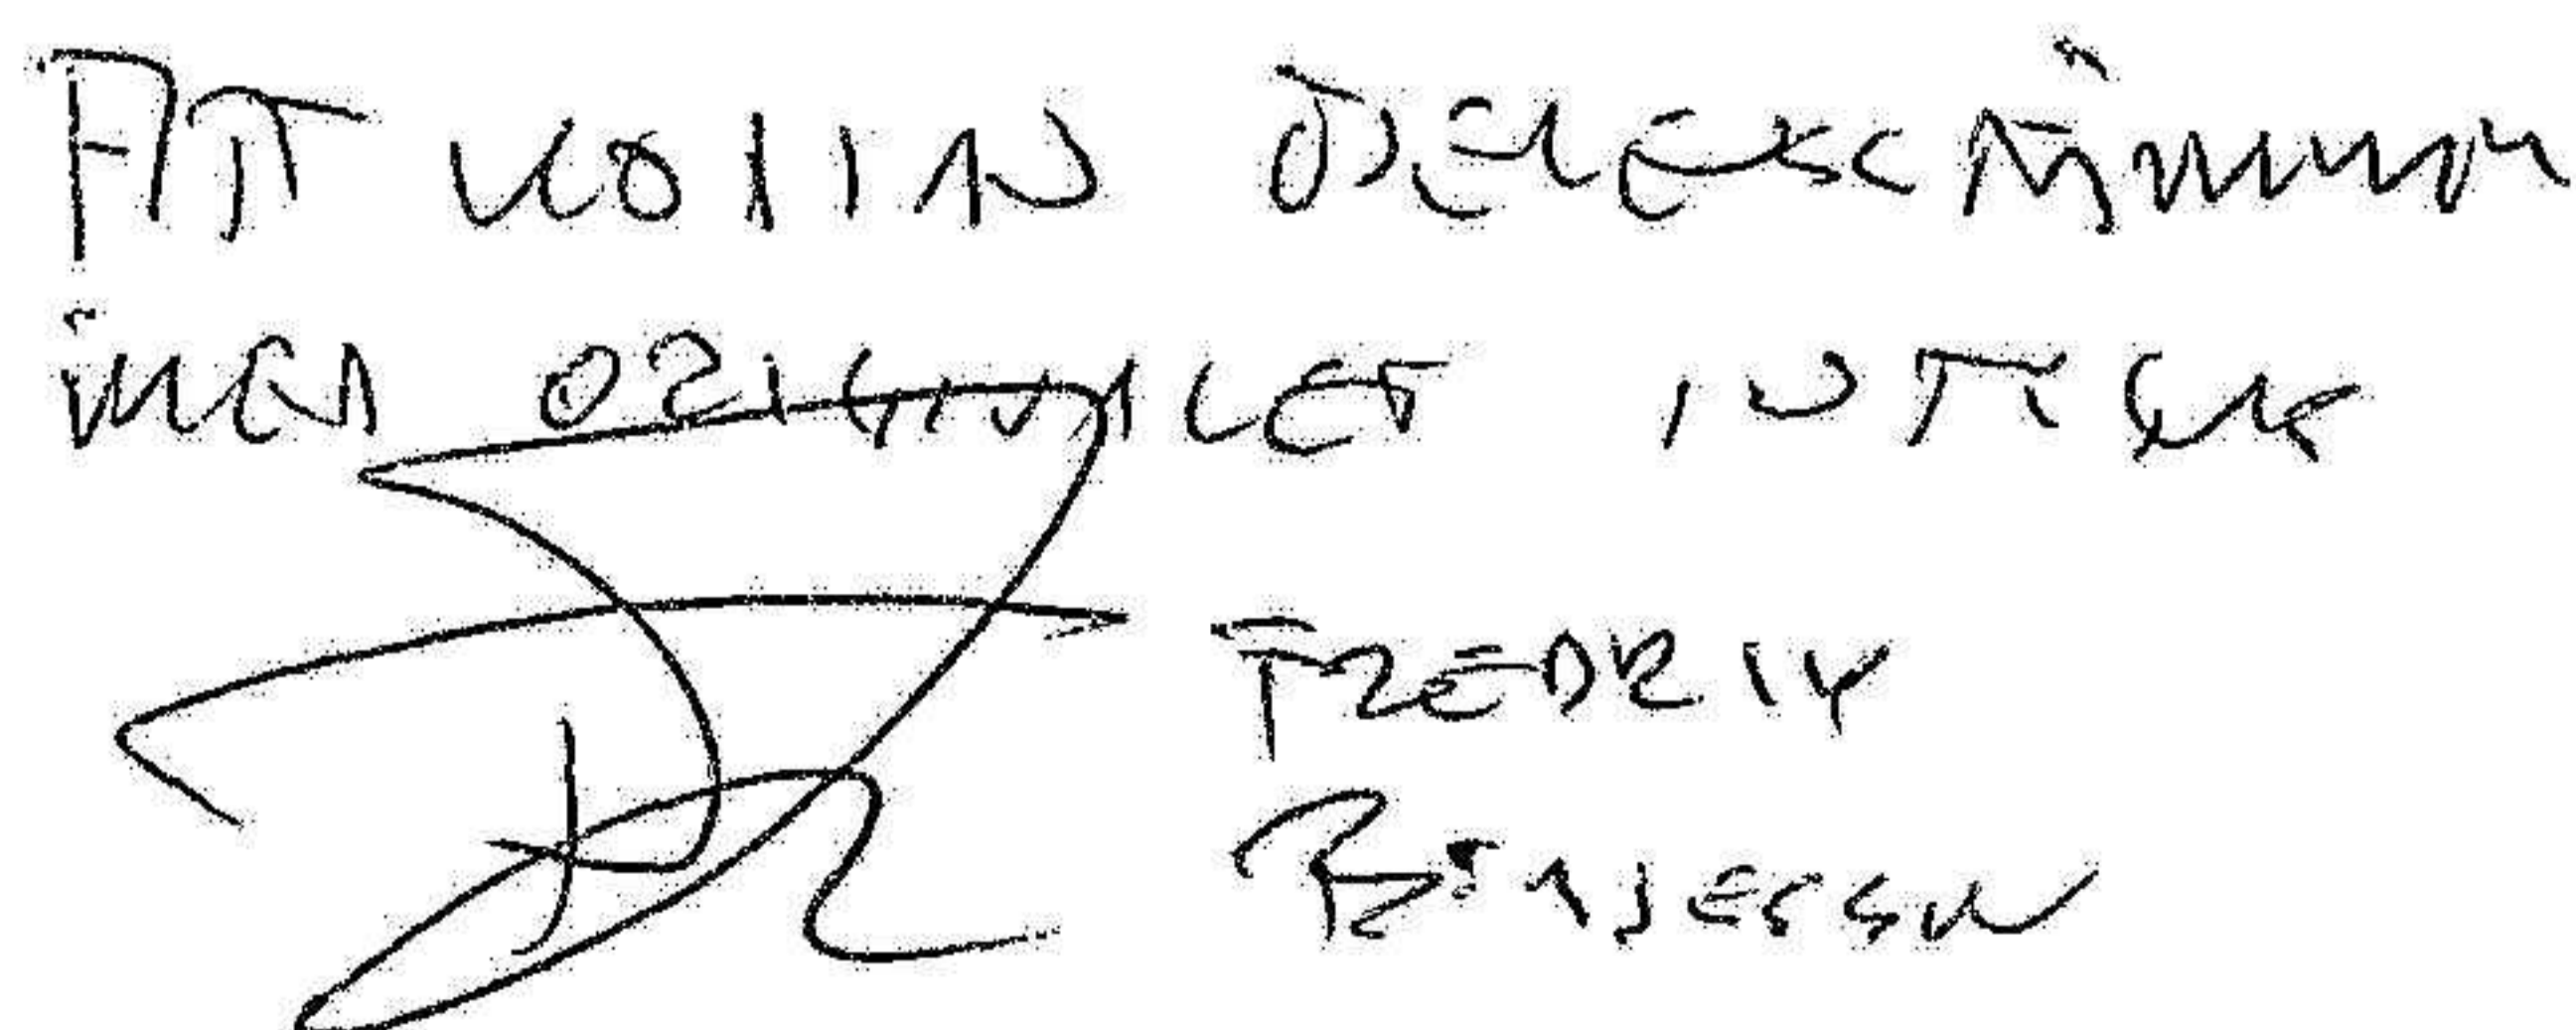 ATT KOPIAN ÖVERENSSTÄMMER
MED ORIGINALET INTYGAR
FREDRIK